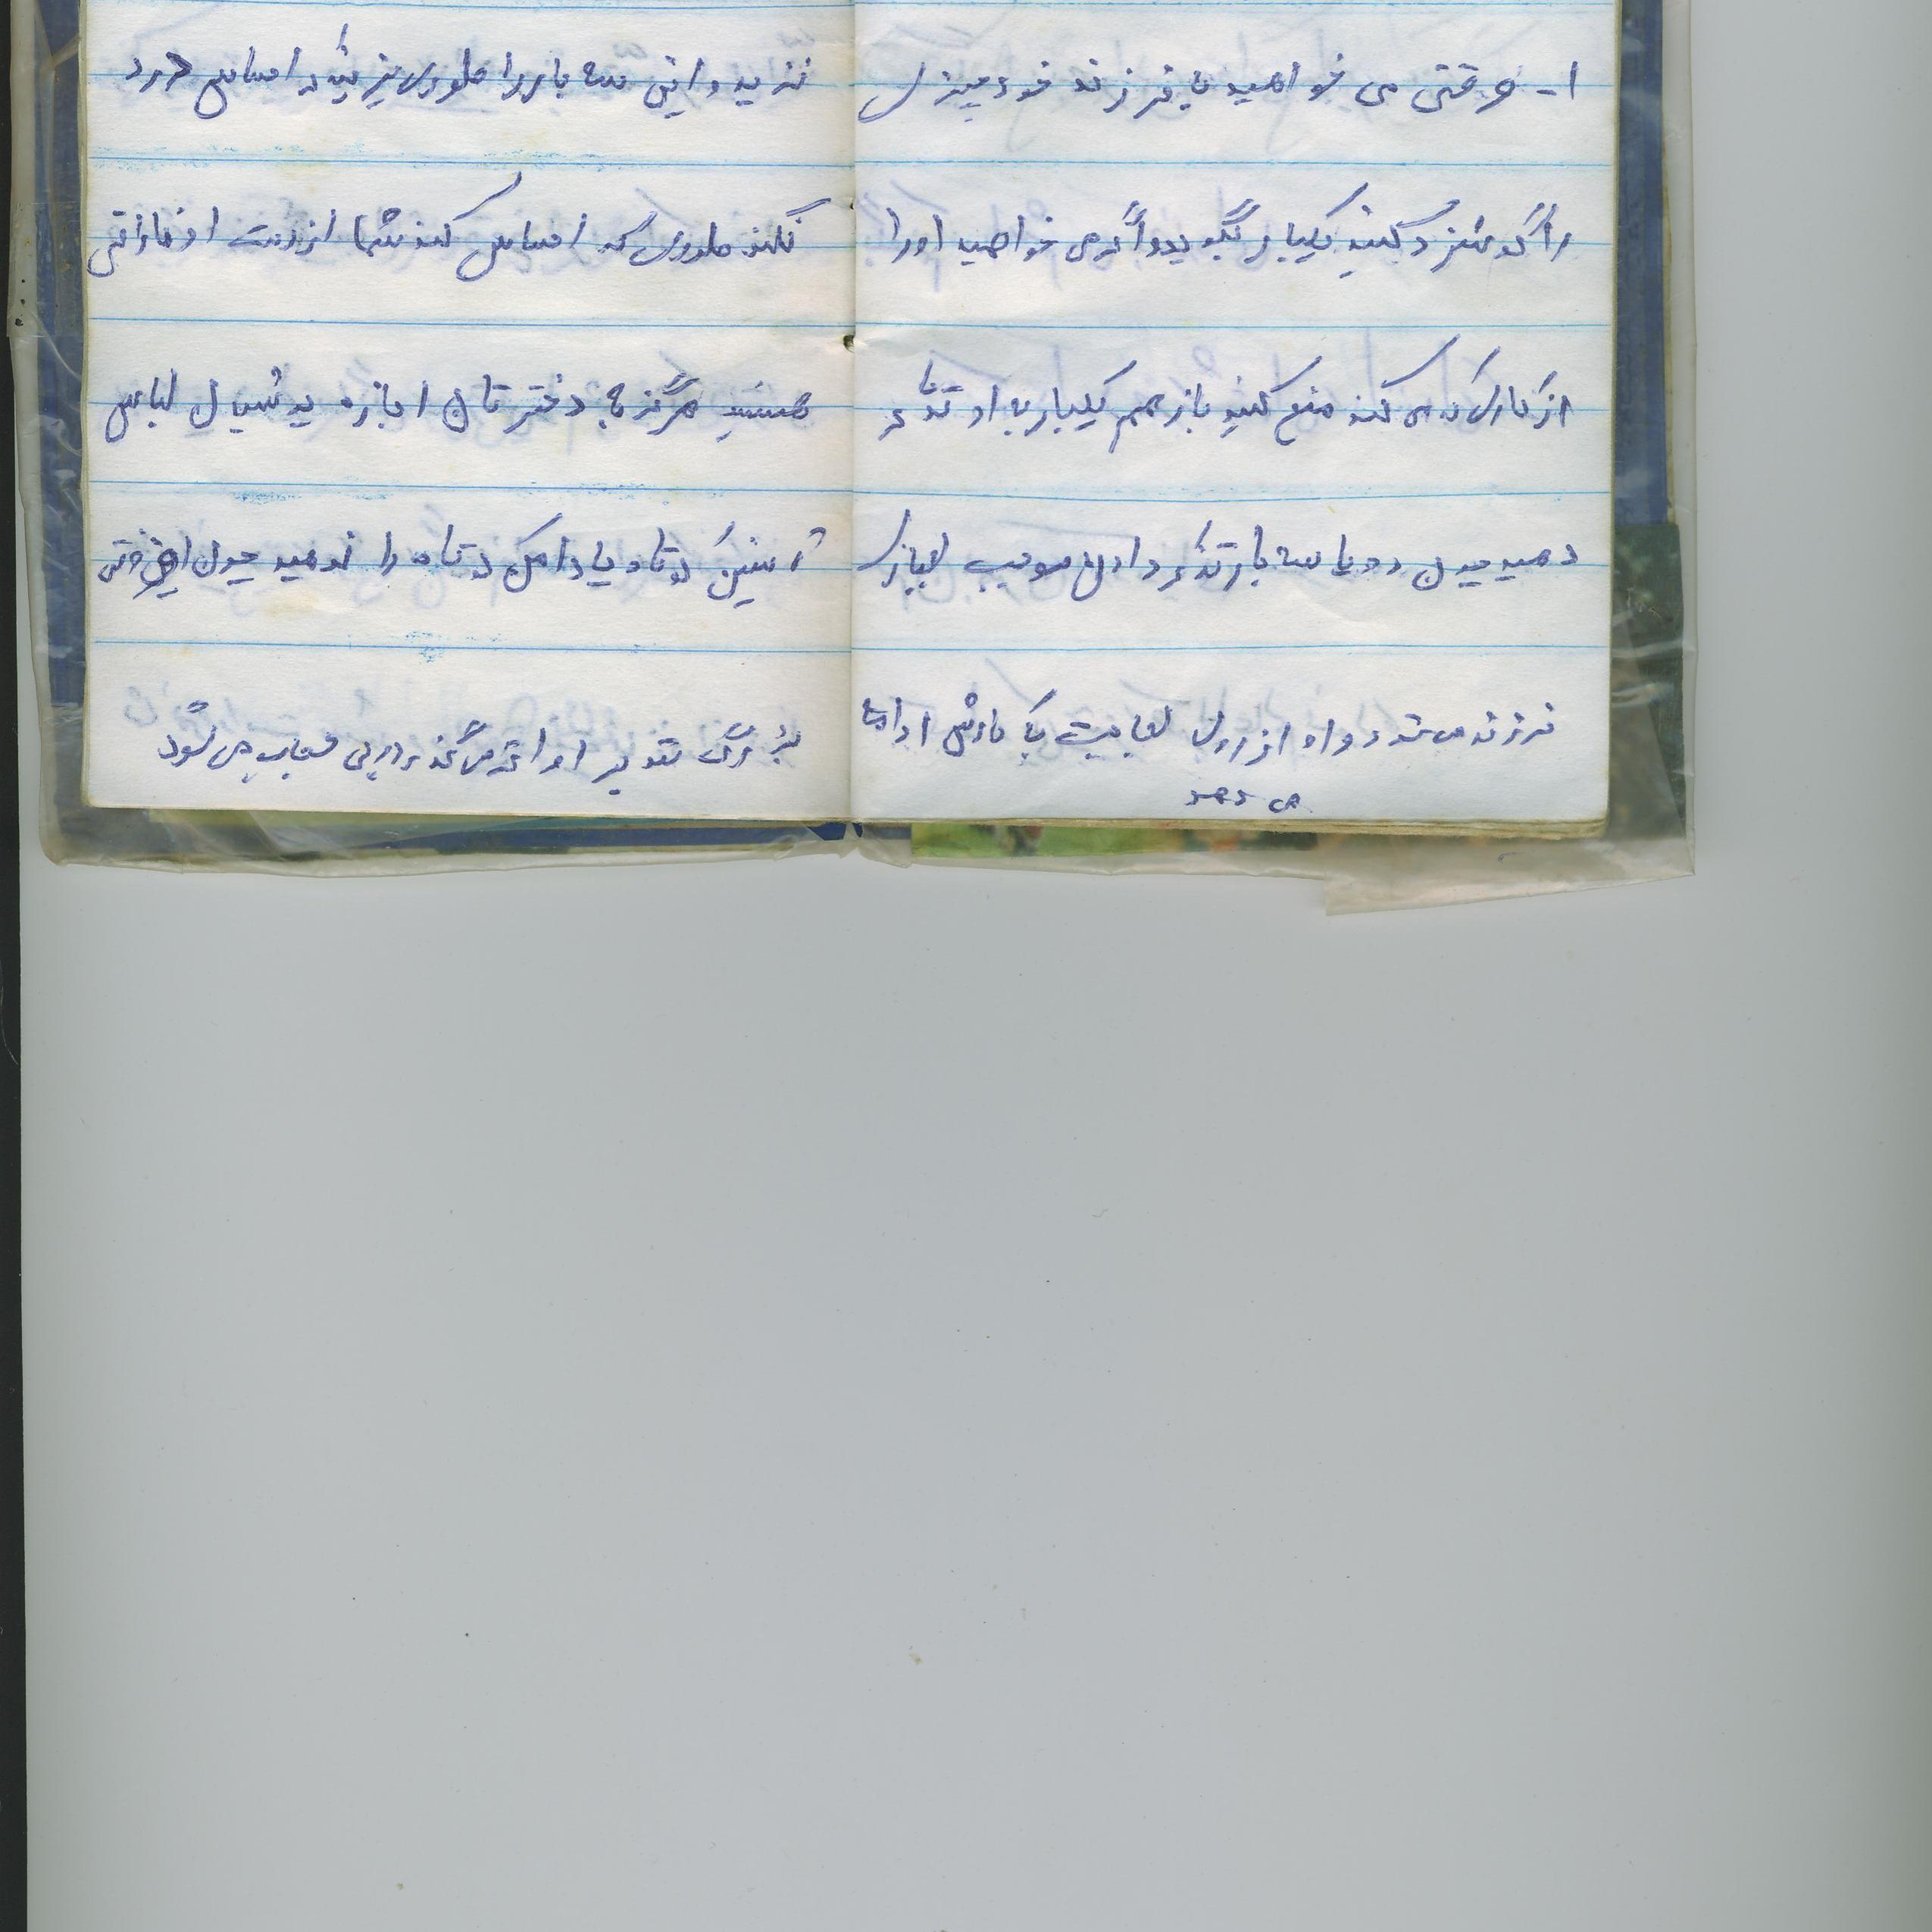 ۱- وقتی می خواهید به فرزند خود چیزی
را گوشزد کنید یکبار بگویید و اگر می خواهید او را
از کاری که می کند منع کنید باز هم یکبار به او تذکر
دهید چون دو یا سه بار تذکر دادن موجب لجبازی
فرزند می شود و او از روی لجاجت به کارش ادامه
می دهد
نزنید و این سه بار را طوری بزنید که احساس درد
نکند طوری که احساس کند شما از دست او ناراحتی
هستید هرگز به دخترتان اجازه پوشیدن لباس
آستین کوتاه یا دامن کوتاه را ندهید چون این وقتی
بزرگ شود بر او اثر می گذارد و بی حجاب می شود